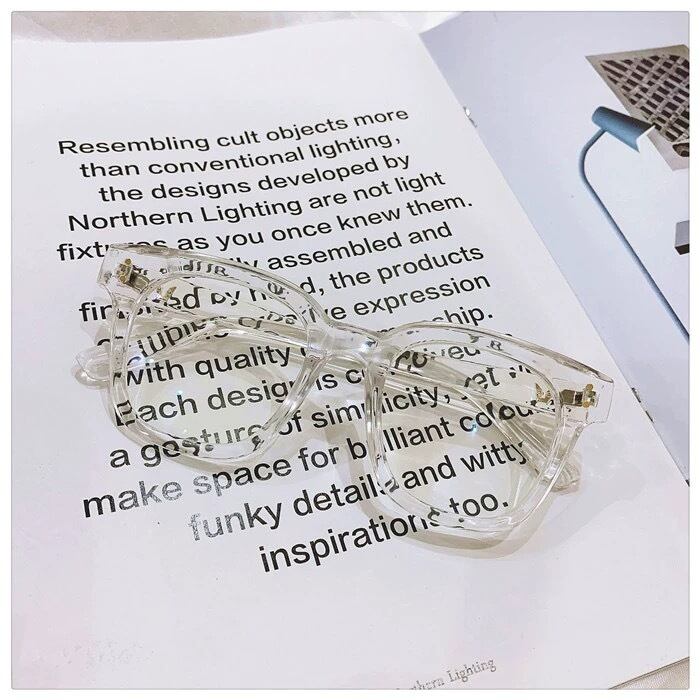 Resembling cult objects more
than conventional lighting,
the designs developed by
Northern Lighting are not light
fixtures as you once knew them.
assembled and
finished by hand, the products
expression
with quality
Each design is
a gesture of simplicity, yet
make space for brilliant colour
funky details and witty
inspirations too.
Northern Lighting